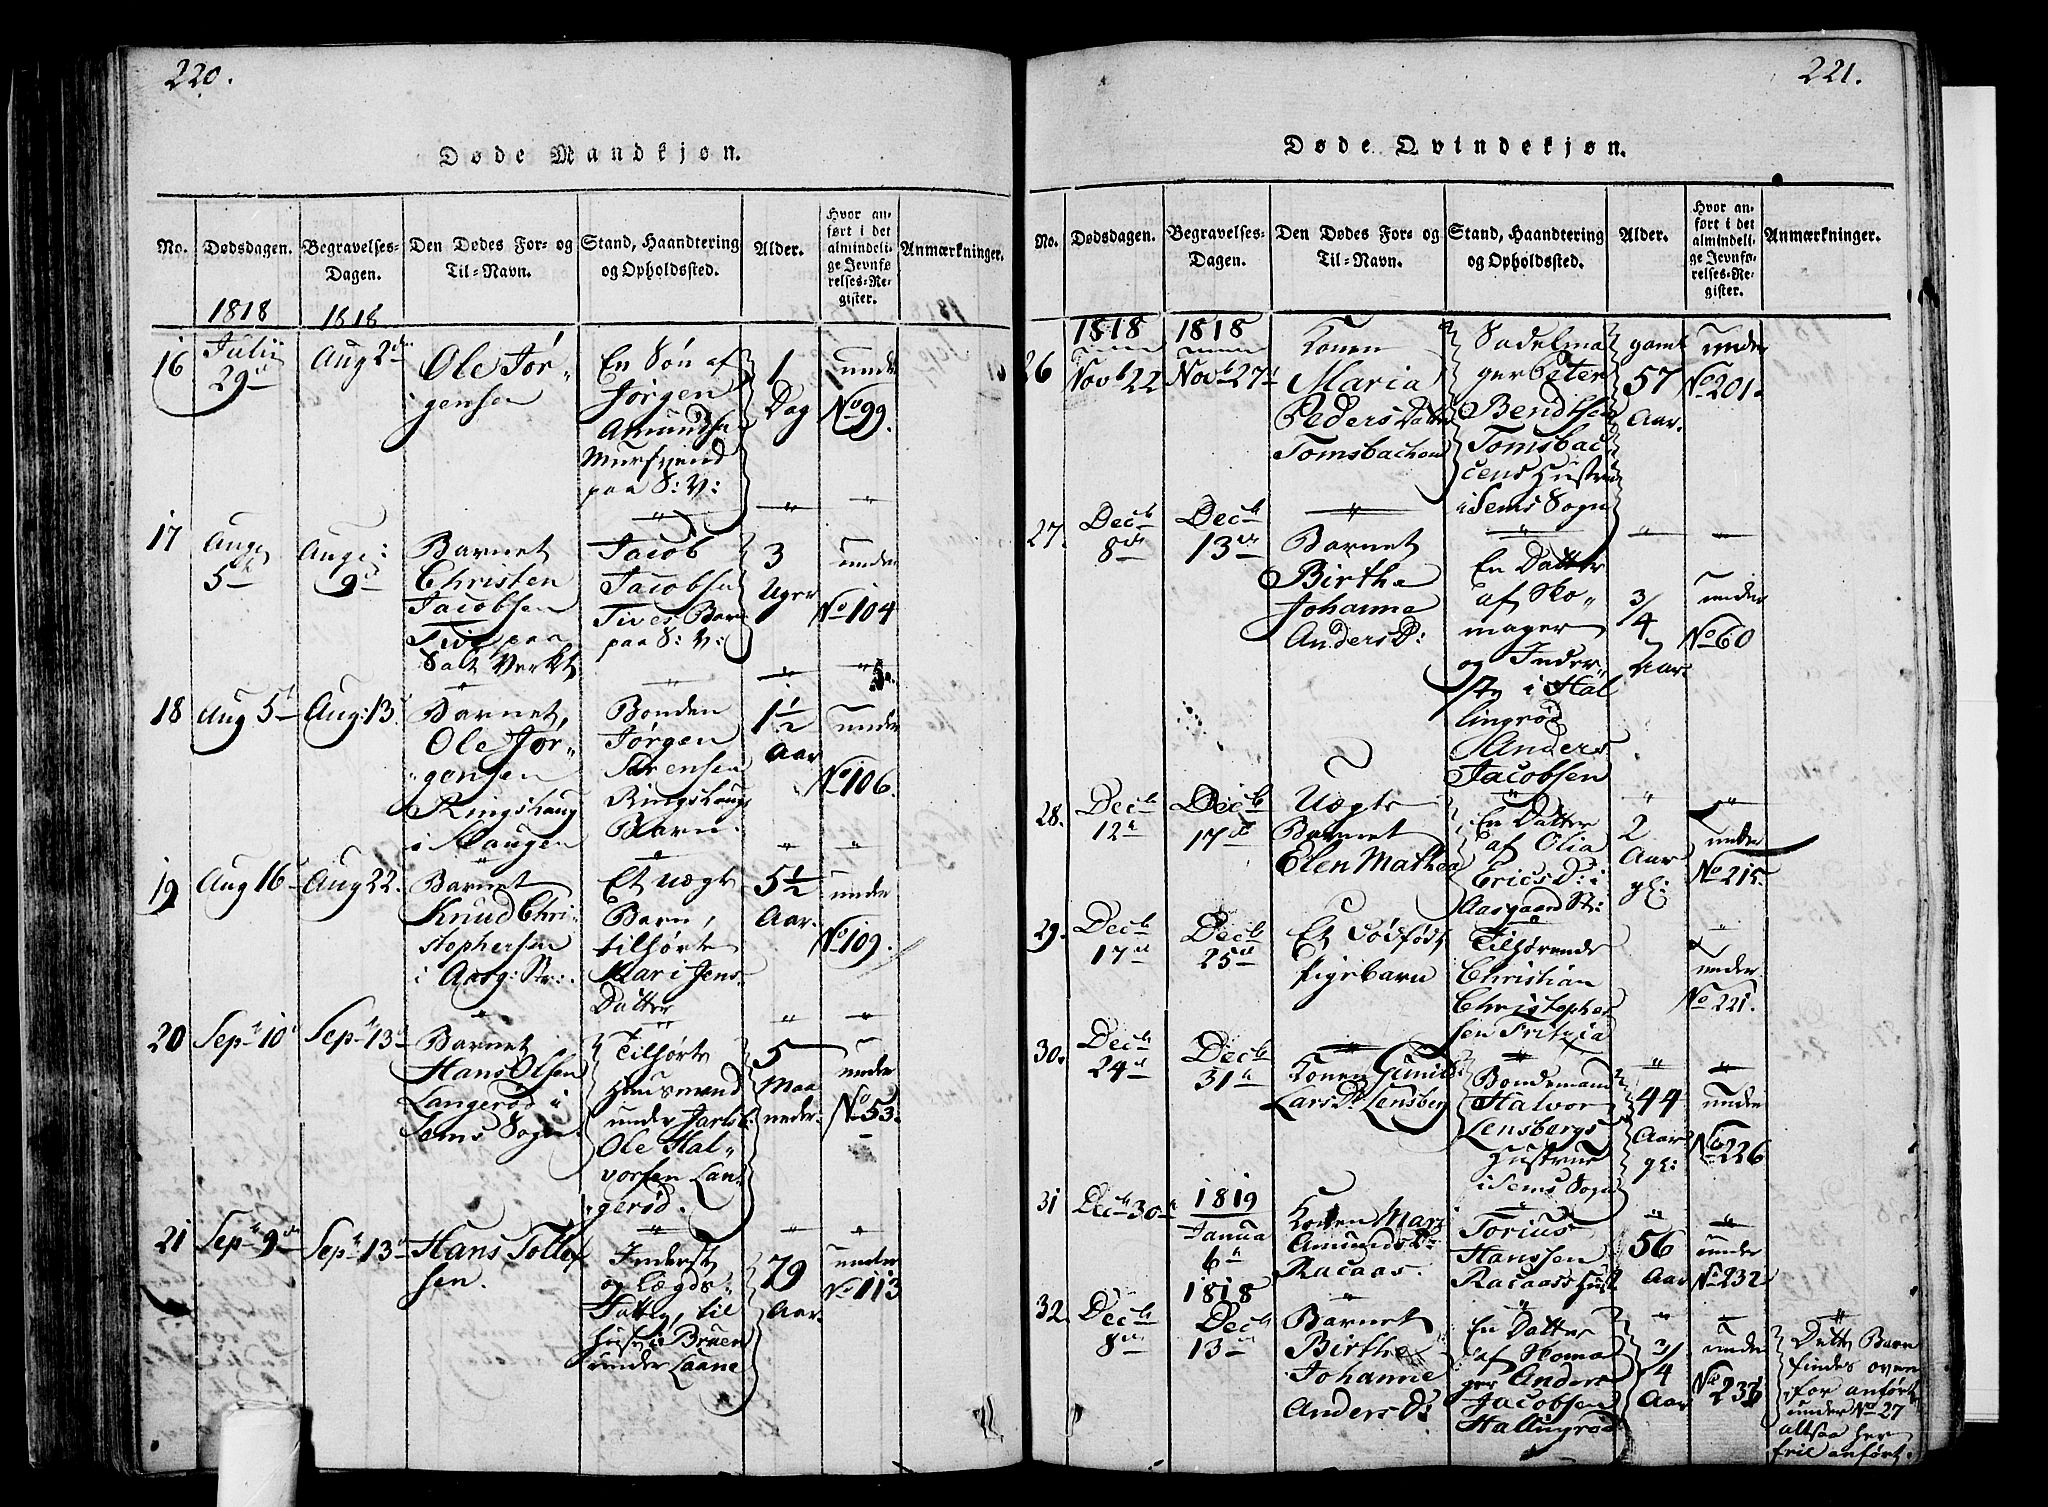 220.
Døde Mandkjøn.
No.
Dødsdagen.
Begravelses-
Dagen.
Den Dødes For- og
Til-Navn.
Stand, Haandtering
og Opholdssted.
Alder.
Hvor an-
ført i det
almindeli-
ge Jevnfø-
relses-Re-
gister.
Anmærkninger.
1818
1818
16
Julii
29
Aug 2
Ole Jør-
gensen
En Søn af
Jørgen
Amundse
Mursvend
paa S: V:
1
Dag
under
No 99.
17
Aug
5
Aug:
9
Barnet
Christen
Jacobsen
Tive paa
Salt Verket
Jacob
Jacobsen
Tives Barn
paa S: V:
3
Uger
under
No 104
18
Aug 5
Aug: 13
Barnet,
Ole Jør-
gensen
Ringshaug
i Slaugen
Bonden
Jørgen
Sørensen
Ringshaugs
Barn.
1 1/2
Aar
under
No 106.
19
Aug 16
Aug 22.
Barnet
Knud Chri-
stophersen
i Aasg: Str:
Et uægte
Barn,
tilhørte
Mari Jens
Datter
5 1/2
Aar.
under
No 109.
20
Sep 10
Sep 13
Barnet
Hans Olsen
Langerød i
Sems Sogn
Tilhørte
Huusmand
under Jarlsb:
Ole Hal-
vorsen Lan-
gerød.
5
Maa
neder.
under
No 53.
21
Sep 9
Sep 13
Hans Tollef
sen.
Inderst
og Lægds-
Fattig, til
huse i Bruen
under Laane
79
Aar.
under
No 113
221.
Døde Qvindekjøn.
No.
Dødsdagen.
Begravelses-
Dagen.
Den Dødes For- og
Til-Navn.
Stand, Haandtering
og Opholdssted.
Alder.
Hvor an-
ført i det
almindeli-
ge Jevnfø-
relses-Re-
gister.
Anmærkninger.
1818
1818
26
Novb 22
Novb 27
Konen
Maria
Peders Datter
Tomsbachen
Sadelma
ger Peter
Bendtsen
Tomsbac
cens Hustrue
i Sems Sogn
gaml
57
Aar.
under
No 201.
27.
Decb
8
Decb
13
Barnet
Birthe
Johanne
Anders D:
En Datter
af Sko-
mager
og Inder-
ste i Hal
lingrød
Anders
Jacobsen
3/4
Aar.
under
No 60
28.
Decb
12
Decb
17
Uægte
Barnet
Elen Mathea
En Datter
af Olia
Erics D: i
Aasgaard Str:
2
Aar
gl:
under
No 215.
29.
Decb
17
Decb
25
Et Dødfødt
Pigebarn
Tilhørende
Christian
Christopher
sen Fritzia
under
No 221.
30.
Decb
24
Decb
31
Konen Gunild
Lars D Lensberg
Bondemand
Halvor
Lensbergs
Hustrue
i Sems Sogn
44
Aar
gl:
under
No 226
31
Decb 30
1819
Janua
6
Konen Mari
Amunds D
Racaas.
Torius
Hanssen
Racaas's Hust
56
Aar
under
No 232
32.
Decb
8
1818
Decb
13
Barnet
Birthe
Johanne
Anders D:
En Datter
af Skoma
ger Anders
Jacobsen
Hallingrød
3/4
Aar
under
No 236
Dette Barn
findes oven
for anført
under No 27
altsaa her
feil anført.